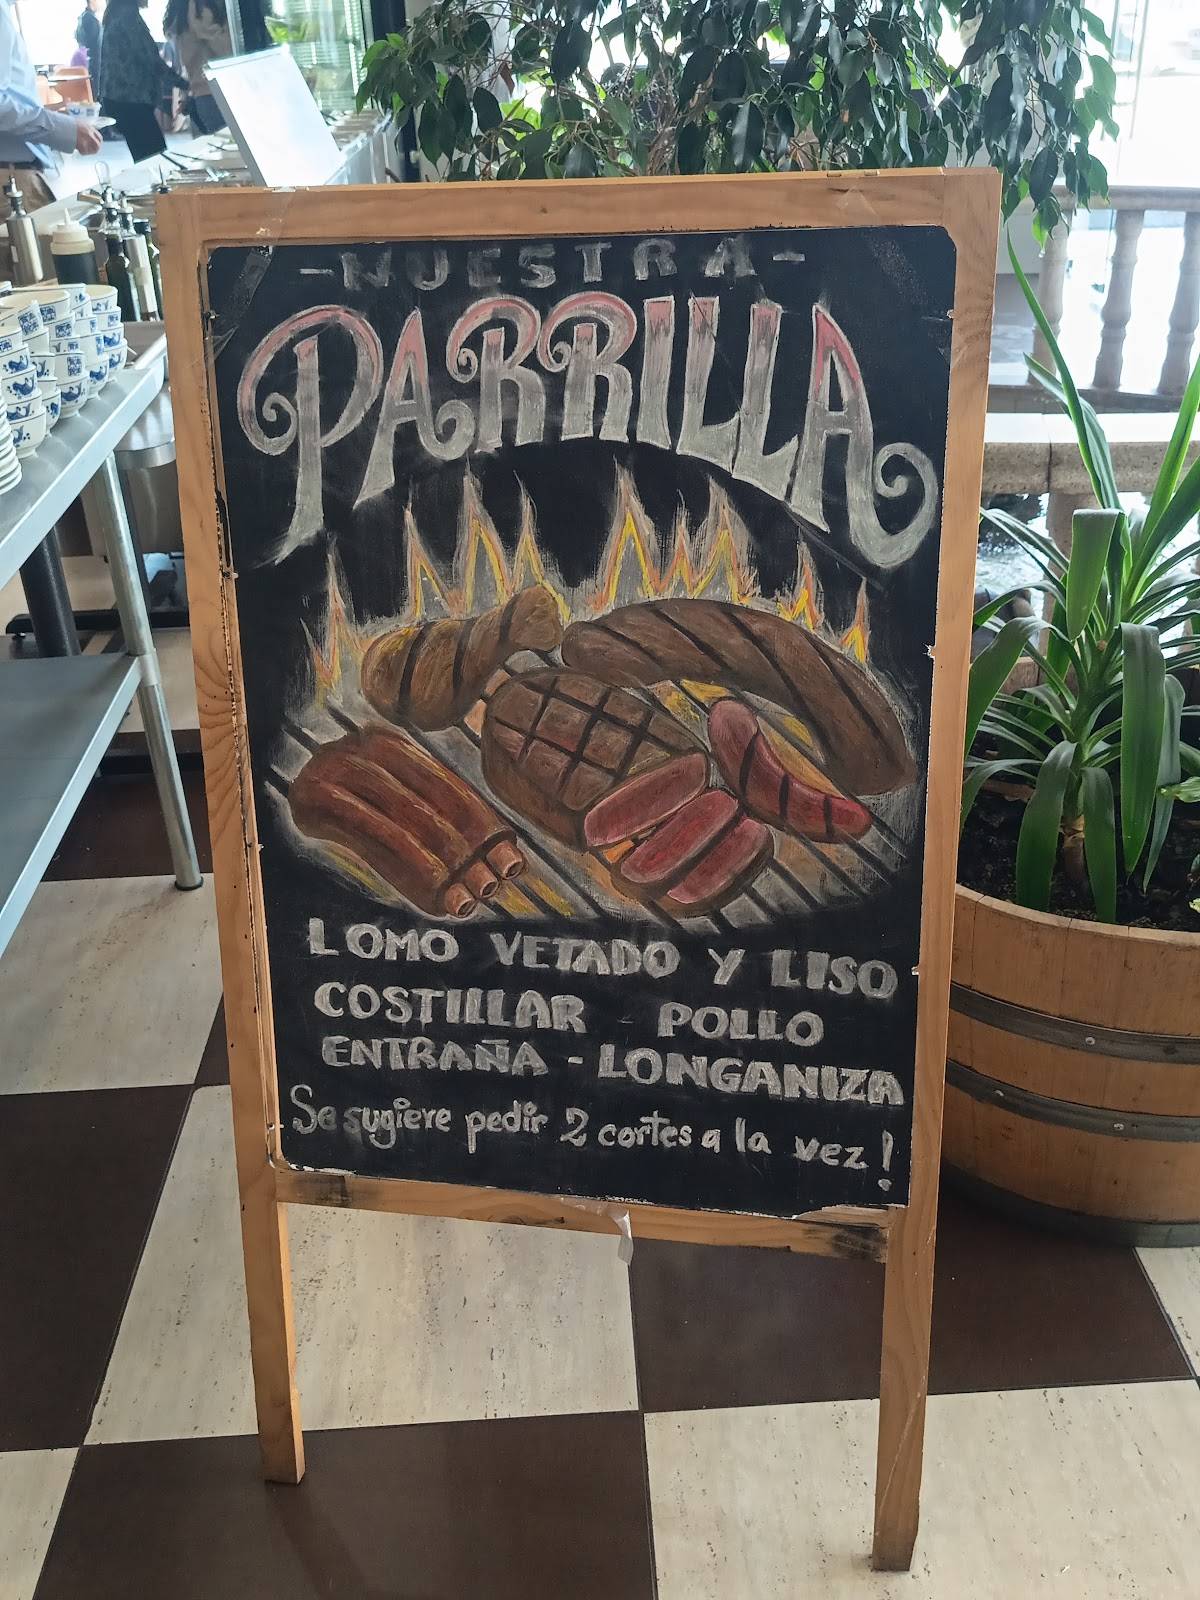 - NUESTRA -
PARRILLA
LOMO VETADO Y LISO
COSTILLAR - POLLO
ENTRAÑA - LONGANIZA
Se sugiere pedir 2 cortes a la vez!